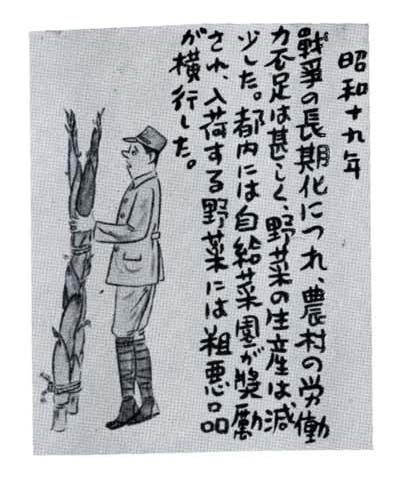 昭和十九年
戦爭の長期化につれ、農村の労働
力不足は甚しく、野菜の生産は減
少した。都内には自給菜園が奬勵
され、入荷する野菜には粗悪品
が横行した。